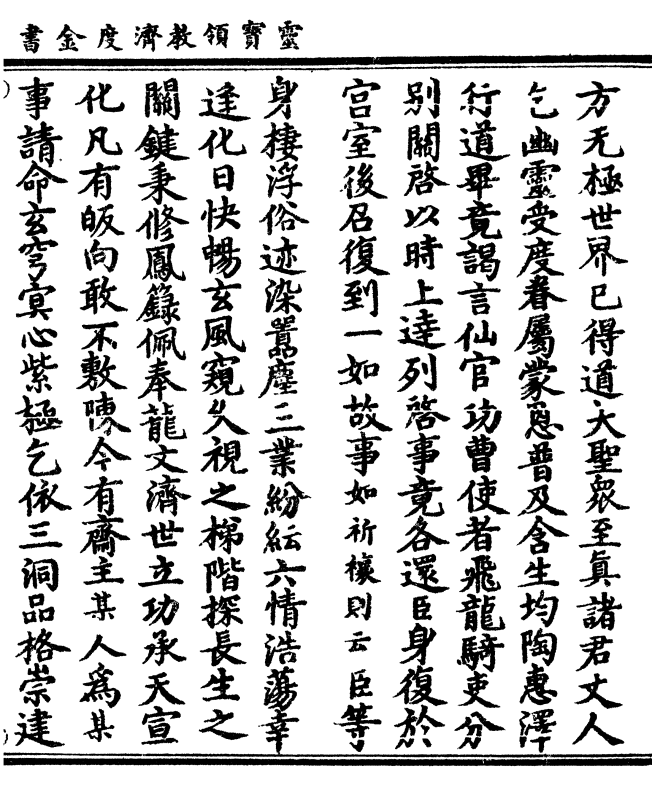 靈寶領教濟度金書
方无極世界已得道大聖衆至真諸君丈人
乞幽靈受度眷屬蒙恩普及含生均陶惠澤
行道畢竟謁言仙官功曹使者飛龍騎吏分
别關啓以時上達列啓事竟各還臣身復於
宫室後召復到一如故事如祈禳則云臣等
身棲浮俗迹染囂塵三業紛紜六情浩蕩幸
逢化日快暢玄風窺久視之梯階探長生之
關鍵秉修鳳籙佩奉龍文濟世立功承天宣
化凡有皈向敢不敷陳今有齋主某人爲某
事請命玄穹冥心紫極乞依三洞品格崇建